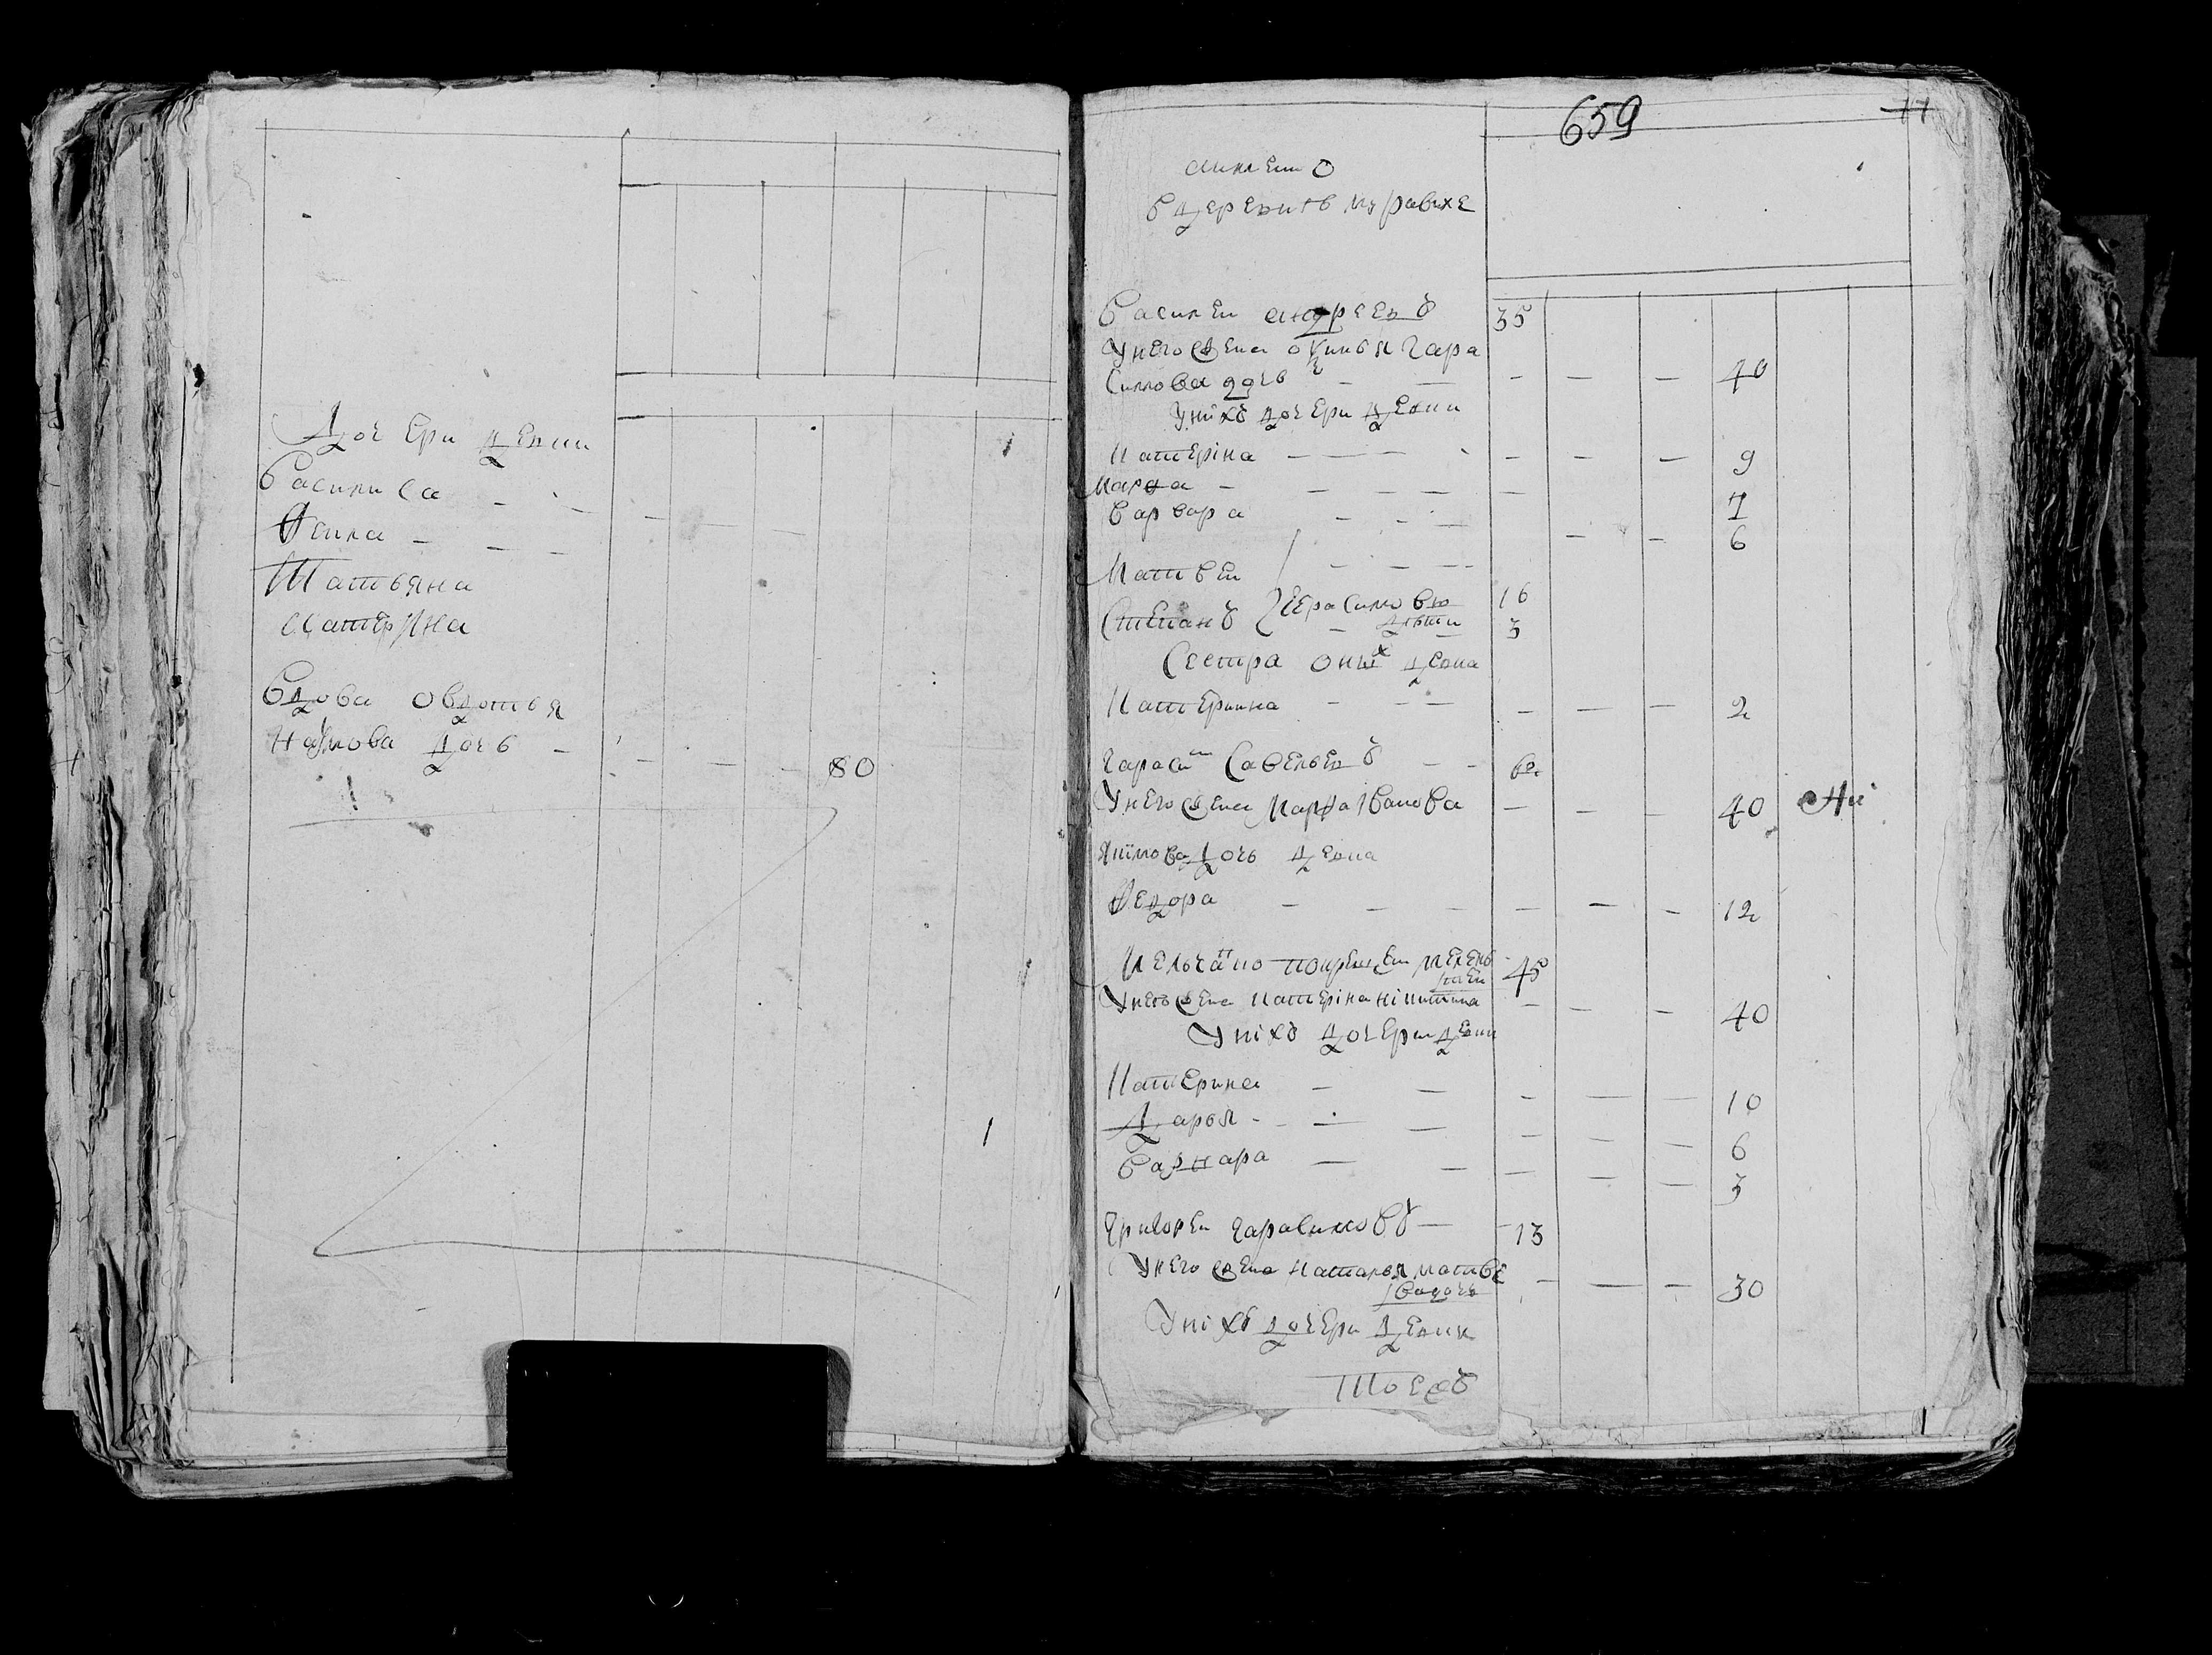 Дочери девки
Василиса
Фекла
Татьяна
Катерина
Вдова Овдотья
Наумова дочь - 80
659
77
в деревне Муравке
Василеи Андреевъ 35
У него жена Окулина Гара
симова дочь 40
У нихъ дочери девки
Катеріна 9
Марфа 7
Варвара 6
Матвеи
Степанъ Герасимовы 16
дети 3
Сестра оных девка
Катерина 2
Гарасим Савельевъ 60
У него жена Марфа Иванова 40
Якімова дочь девка
Федора 12
45
У него жена Катеріна Нікитина 40
У ніхъ дочери девки
Катерина 10
Дарья 6
Варвара 3
Григореи Гарасимовъ 13
У него жена Наталья Матве
ева дочь 30
У ніхъ дочери девки